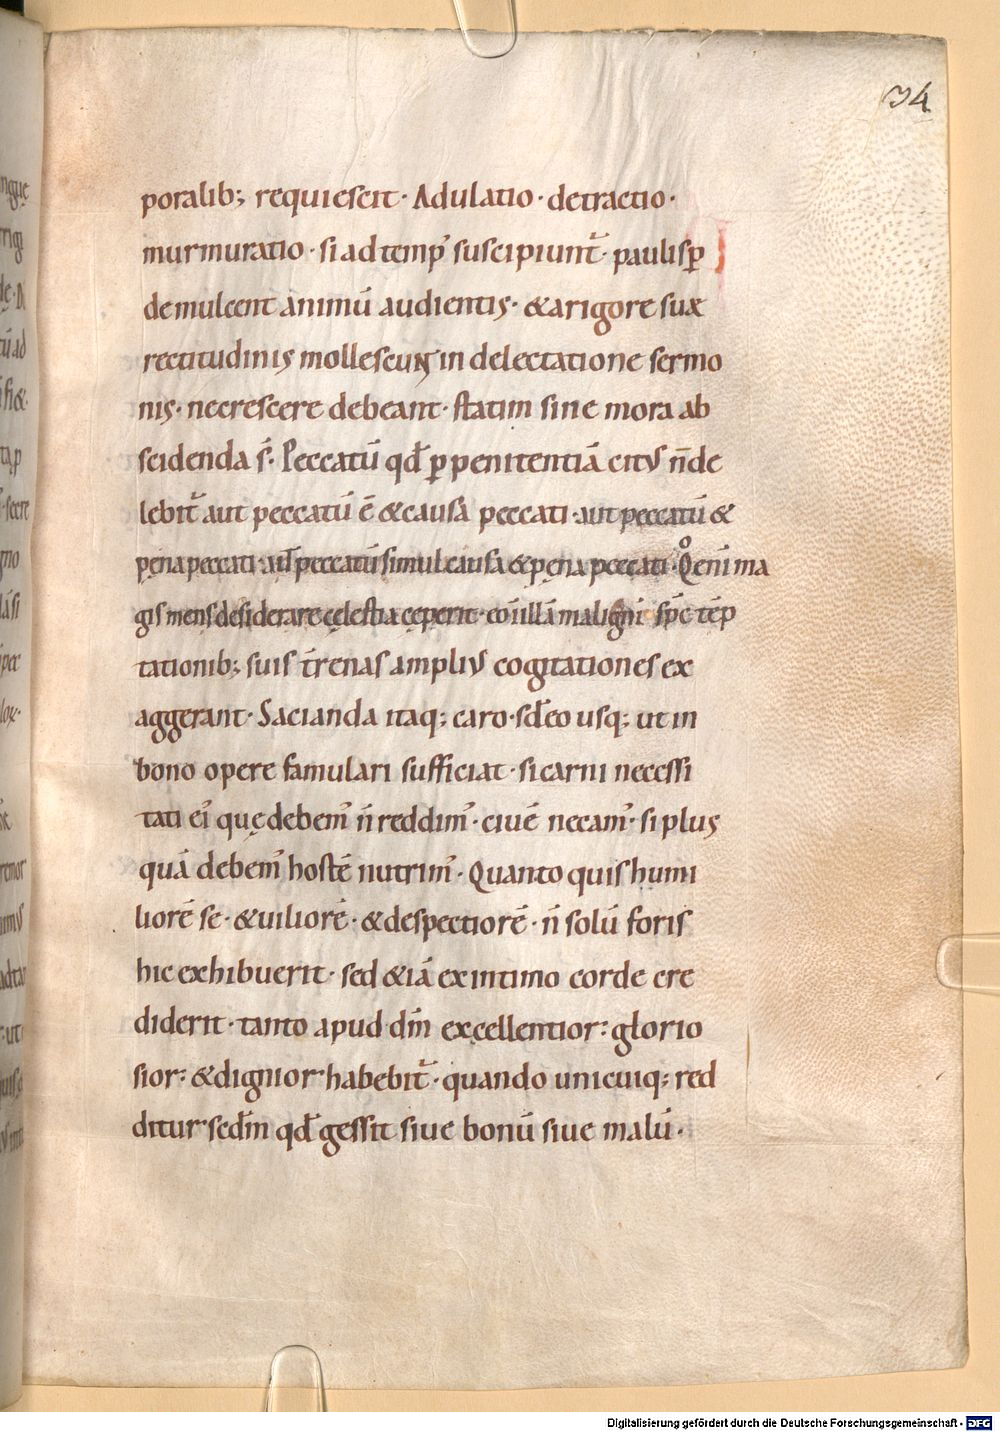 34
poralib; requiescit · Adulatio · detractio ·
murmuratio · si ad temp᾿ suscipiunt᷑ · paulisꝑ
demulcent animū audientis · & a rigore suae
rectitudinis mollescunt in delectatione sermo
nis · ne crescere debeant · statim sine mora ab
scidenda s̄ · Peccatū qđ ꝑ penitentiā citus n̄ de
lebit᷑ aut peccatū ē & causa peccati · aut peccatū &
pęna peccati · aut peccatū simul causa & pęna peccati · Qͦ enī ma
gis mens desiderare cęlestia cęperit · eo illā maligni sp̄c tēp
tationib; suis t̄renas amplius cogitationes ex
aggerant · Sacianda itaq; caro · sđ eo usq; ut in
bono opere famulari sufficiat · si carni necessi
tati ei᾿ quę debem᾿ n̄ reddim᾿ · ciuē necam᾿ · si plus
quā debem᾿ hostē nutrim᾿ · Quanto quis humi
liorē se · & uiliorē · & despectiorē · n̄ solū foris
hic exhibuerit · sed & iā ex intimo corde cre
diderit · tanto apud dm̄ excellentior · glorio
sior · & dignior habebit᷑ · quando unicuiq; red
ditur scđm qđ gessit siue bonū siue malū ·
Digitalisierung gefördert durch die Deutsche Forschungsgemeinschaft - DFG